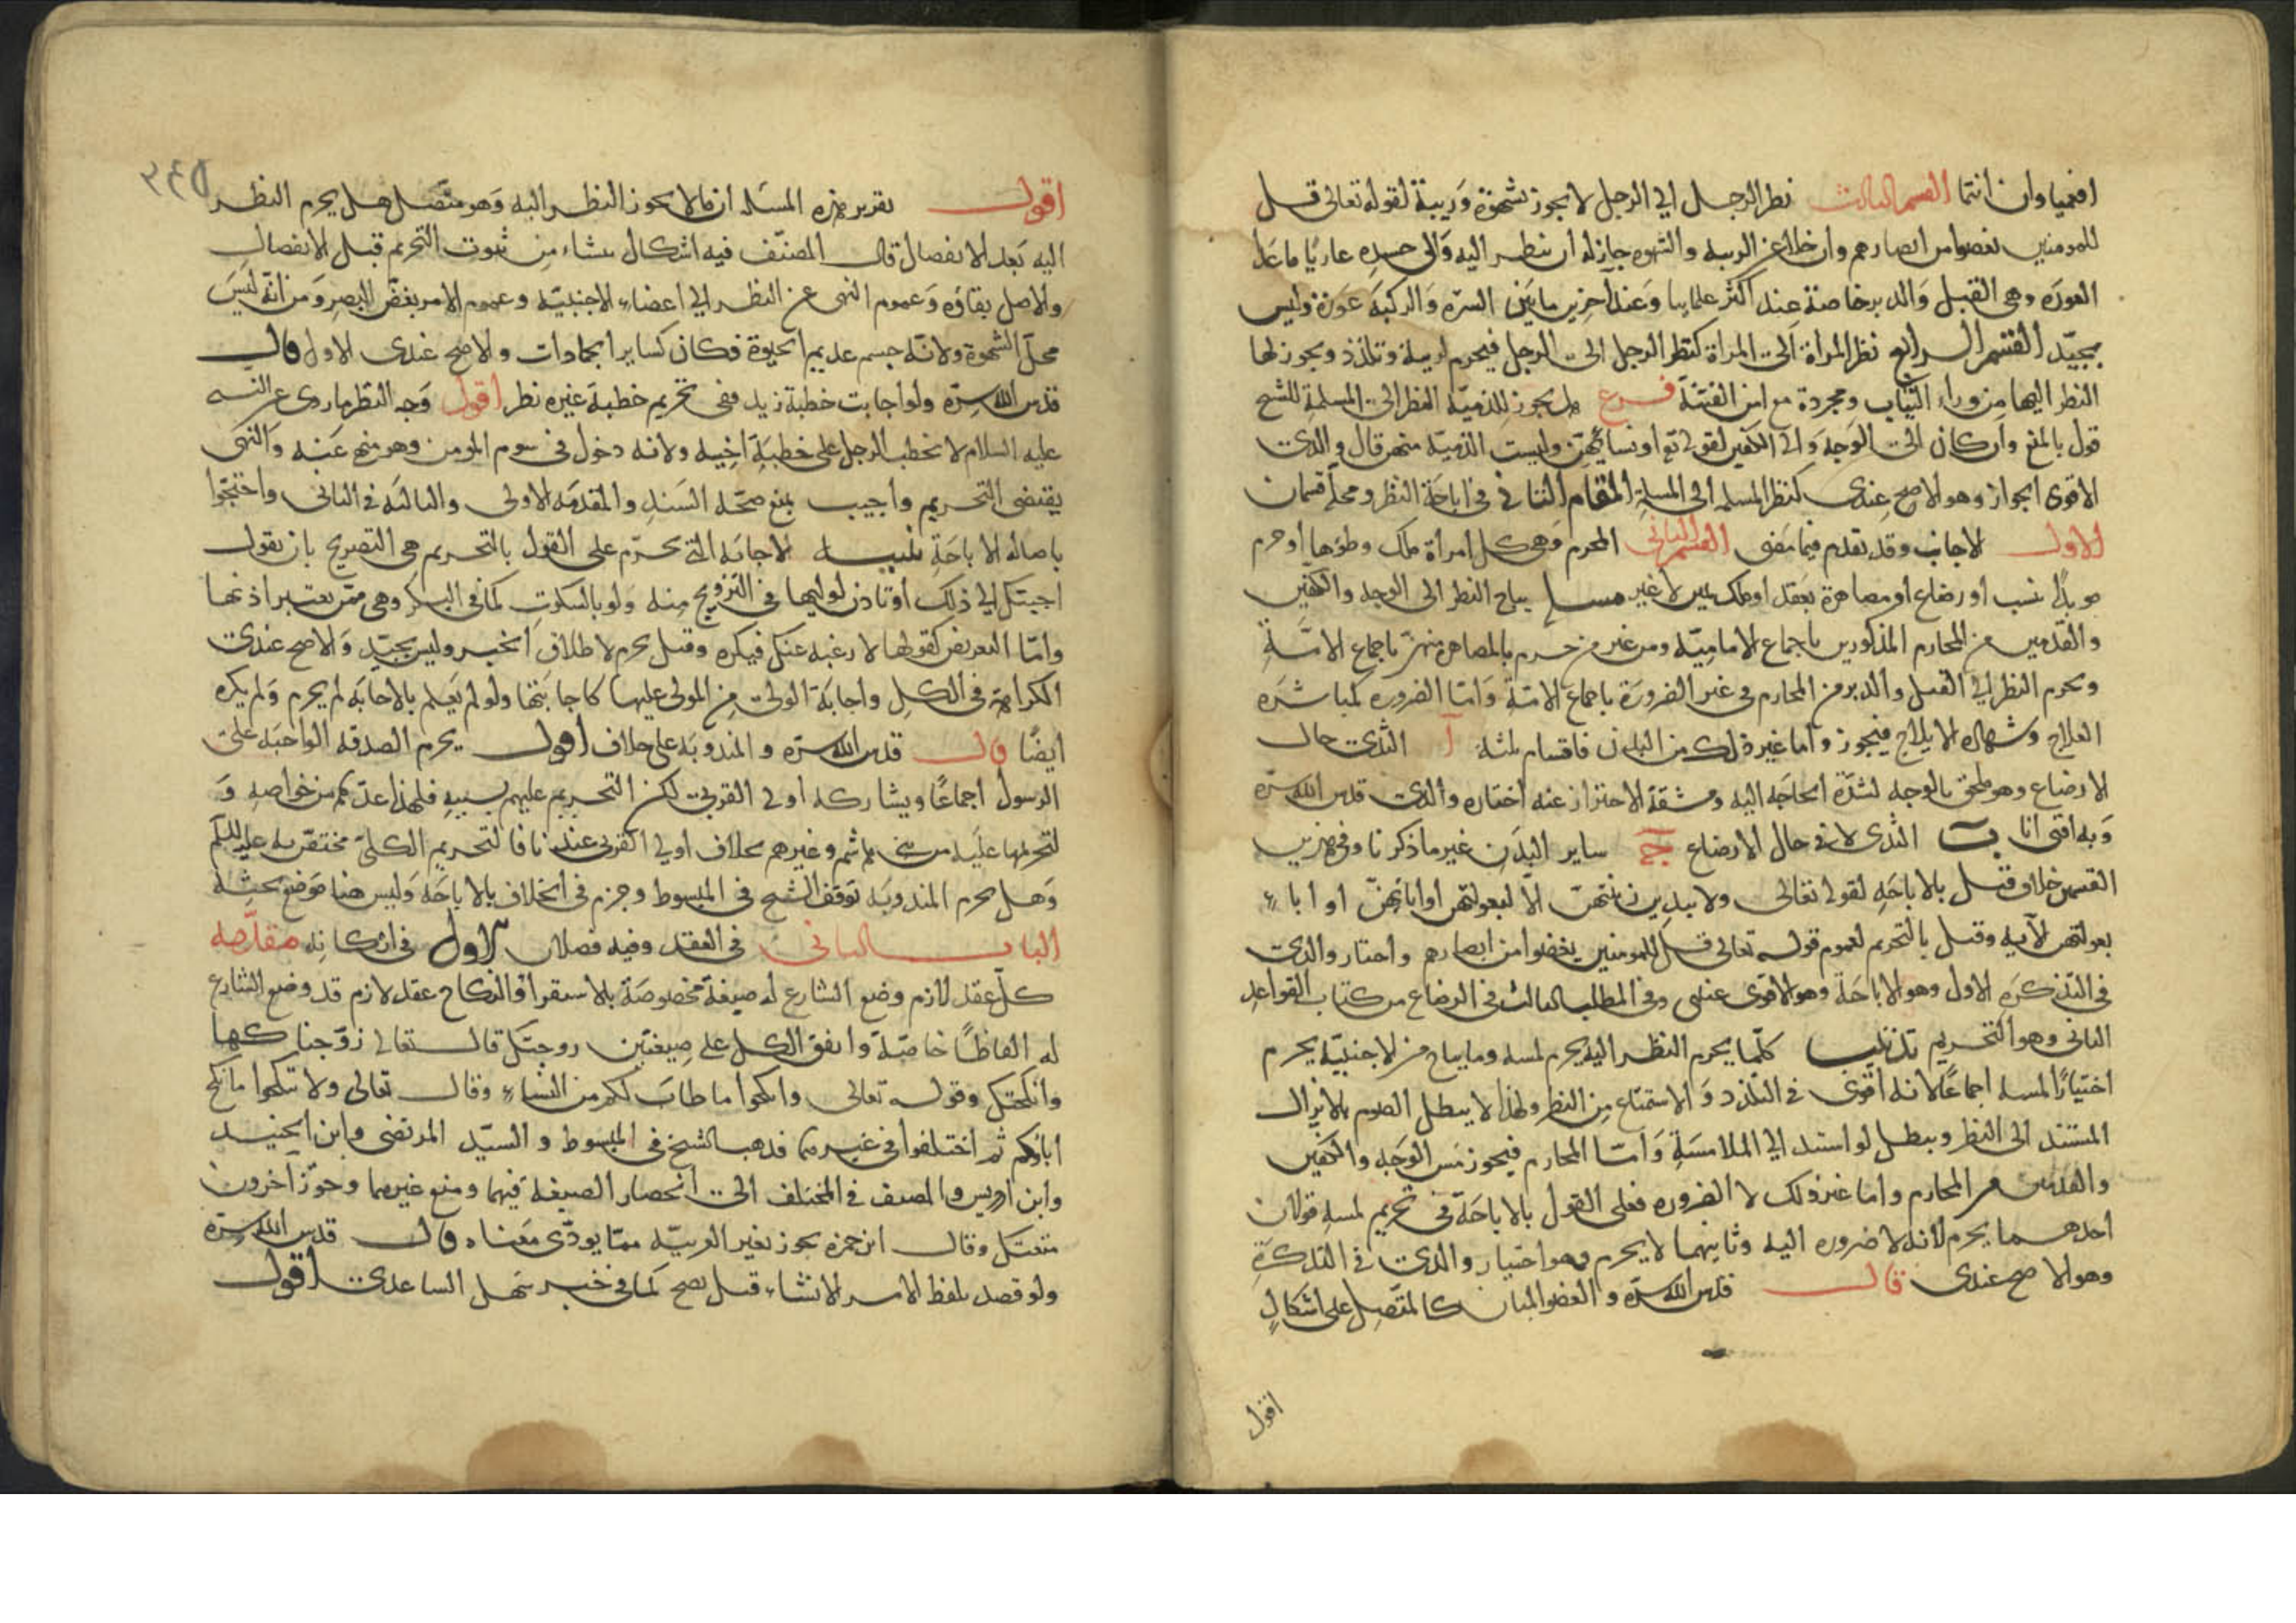 افعمياوان انتما القسم الثالث نظر الرجل الي الرجل لا يجوز بشهوة وريبة لقوله تعالى قل
للمومنين يغضوا من ابصارهم وان خلا عن الريبه والشهوه جاز له ان ينظر اليه والى جسده عاريا ما عدا
العورة وهى القبل والدبر خاصة عند اكثر علمائنا وعند اخرين ما بين السرة والركبة عورة وليس
بجيد القسم الرابع نظر المراة الى المراة كنظر الرجل الى الرجل فيحرم لريبة وتلذذ ويجوز لها
النظر اليها من وراء الثياب ومجردة مع امن الفتنة فرع هل يجوز للذمية النظر الى المسلمة للشيخ
قول بالمنع وان كان الى الوجه والى الكفين لقوله تع او نسائهن وليست الذمية منهن قال والدى
الاقوى الجواز وهو الاصح عندى كنظر المسلمه الى المسلمة المقام الثانى فى اباحة النظر ومحله قسمان
الاول الاجانب وقد تقدم فيما مضى القسم الثانى المحرم وهى كل امراة ملك وطؤها او حرم
موبدا بنسب او رضاع او مصاهرة بعقد او ملك يمين لا غير يباح النظر الى الوجه والكفين
والقدمين من المحارم المذكورين باجماع الامامية ومن غير من حرم بالمصاهرة منهن باجماع الامة
ويحرم النظر الى القبل والدبر من المحارم فى غير الضرورة باجماع الامة واما الضروره كمباشرة
العلاج وشهادة الايلاج فيجوز واما غير ذلك من البدن فاقسام ثلثة آ الثدى حال
الارضاع وهو ملحق بالوجه لشدة الحاجه اليه ومشقة الاحتراز عنه اختاره والدى قدس الله سره
وبه افتى انا ب الثدى لا فى حال الارضاع ج ساير البدن غير ما ذكرنا وفى هذين
القسمين خلاف قيل بالاباحه لقوله تعالى ولا يبدين زينتهن الا لبعولتهن او ابائهن او اباء
بعولتهن الايه وقيل بالتحريم لعموم قوله تعالى قل للمومنين يغضوا من ابصارهم واختار والدى
فى التذكره الاول وهو الاباحة وهو الاقوى عندى وفى المطلب الثالث فى الرضاع من كتاب القواعد
الثانى وهو التحريم تذنيب كلما يحرم النظر اليه يحرم لمسه وما يباح من الاجنبية يحرم
اختيارا لمسه اجماعا لانه اقوى فى التلذذ والاستمتاع من النظر ولهذا لا يبطل الصوم بالانزال
المستند الى النظر ويبطل لو استند الي الملامسة واما المحارم فيجوز مس الوجه والكفين
والقدمين من المحارم واما غير ذلك لا لضروره فعلى القول بالاباحة فى تحريم لمسه قولان
احدهما يحرم لانه لا ضروره اليه وثانيهما لا يحرم وهو اختيار والدى فى التذكرة
وهو الاصح عندى قال قدس الله سره والعضو المبان كالمتصل على اشكال
اقول
٣٤٥
اقول تقرير هذه المسئله ان ما لا يجوز النظر اليه وهو متصل هل يحرم النظر
اليه بعد الانفصال قال المصنف فيه اشكال ينشاء من ثبوت التحريم قبل الانفصال
والاصل بقاؤه وعموم النهى عن النظر الي اعضاء الاجنبية وعموم الامر بغض البصر ومن انه ليس
محل الشهوة ولانه جسم عديم الحيوة فكان كساير الجمادات والاصح عندى الاول قال
قدس الله سره ولو اجابت خطبة زيد ففى تحريم خطبة غيره نظر اقول وجه النظر ما روى عن النبى
عليه السلام لا يخطب الرجل على خطبة اخيه ولانه دخول فى سوم المومن وهو منهى عنه والنهى
يقتضى التحريم واجيب بمنع صحة السند والمقدمه الاولى والثالثه فى الثانى واحتجوا
باصالة الاباحة تنبيه الاجابه التى يحرم على القول بالتحريم هى التصريح بان يقول
اجبتك الي ذلك او تاذن لوليها فى التزويج منه ولو بالسكوت كما فى البكر وهى ممن يعتبر اذنها
واما التعريض كقولها لا رغبه عنك فيكره وقيل يحرم لاطلاق الخبر وليس بجيد والاصح عندى
الكراهة فى الكل واجابة الولى من المولى عليها كاجابتها ولو لم يعلم بالاجابه لم يحرم ولم يكره
ايضا قال قدس الله سره والمندوبه على خلاف اقول يحرم الصدقه الواجبه على
الرسول اجماعا ويشاركه اولى القربى لكن التحريم عليهم بسببه فلهذا عد من خواصه و
لتحريمها عليه من بنى هاشم وغيرهم بخلاف اولي القربى عندنا فالتحريم الكلى مختص به عليه السلم
وهل يحرم المندوبه توقف الشيخ فى المبسوط وجزم فى الخلاف بالاباحة وليس هنا موضع بحثه
الباب الثانى فى العقد وفيه فصلان الاول فى اركانه مقدمة
كل عقد لازم وضع الشارع له صيغة مخصوصة بالاستقراء والنكاح عقد لازم قد وضع الشارع
له الفاظا خاصة واتفق الكل على صيغتين زوجتك قال تعالى زوجناكها
وانكحتك وقوله تعالى وانكحوا ما طاب لكم من النساء وقال تعالى ولا تنكحوا ما نكح
اباؤكم ثم اختلفوا فى غيرهما فذهب الشيخ فى المبسوط والسيد المرتضى وابن الجنيد
وابن ادريس والمصنف فى المختلف الى انحصار الصيغه فيهما ومنع غيرهما وجوز آخرون
متعتك وقال ابن حمزه يجوز بغير العربية مما يودى معناه قال قدس الله سره
ولو قصد بلفظ الامر الانشاء قيل يصح كما فى خبر سهل الساعدى اقول